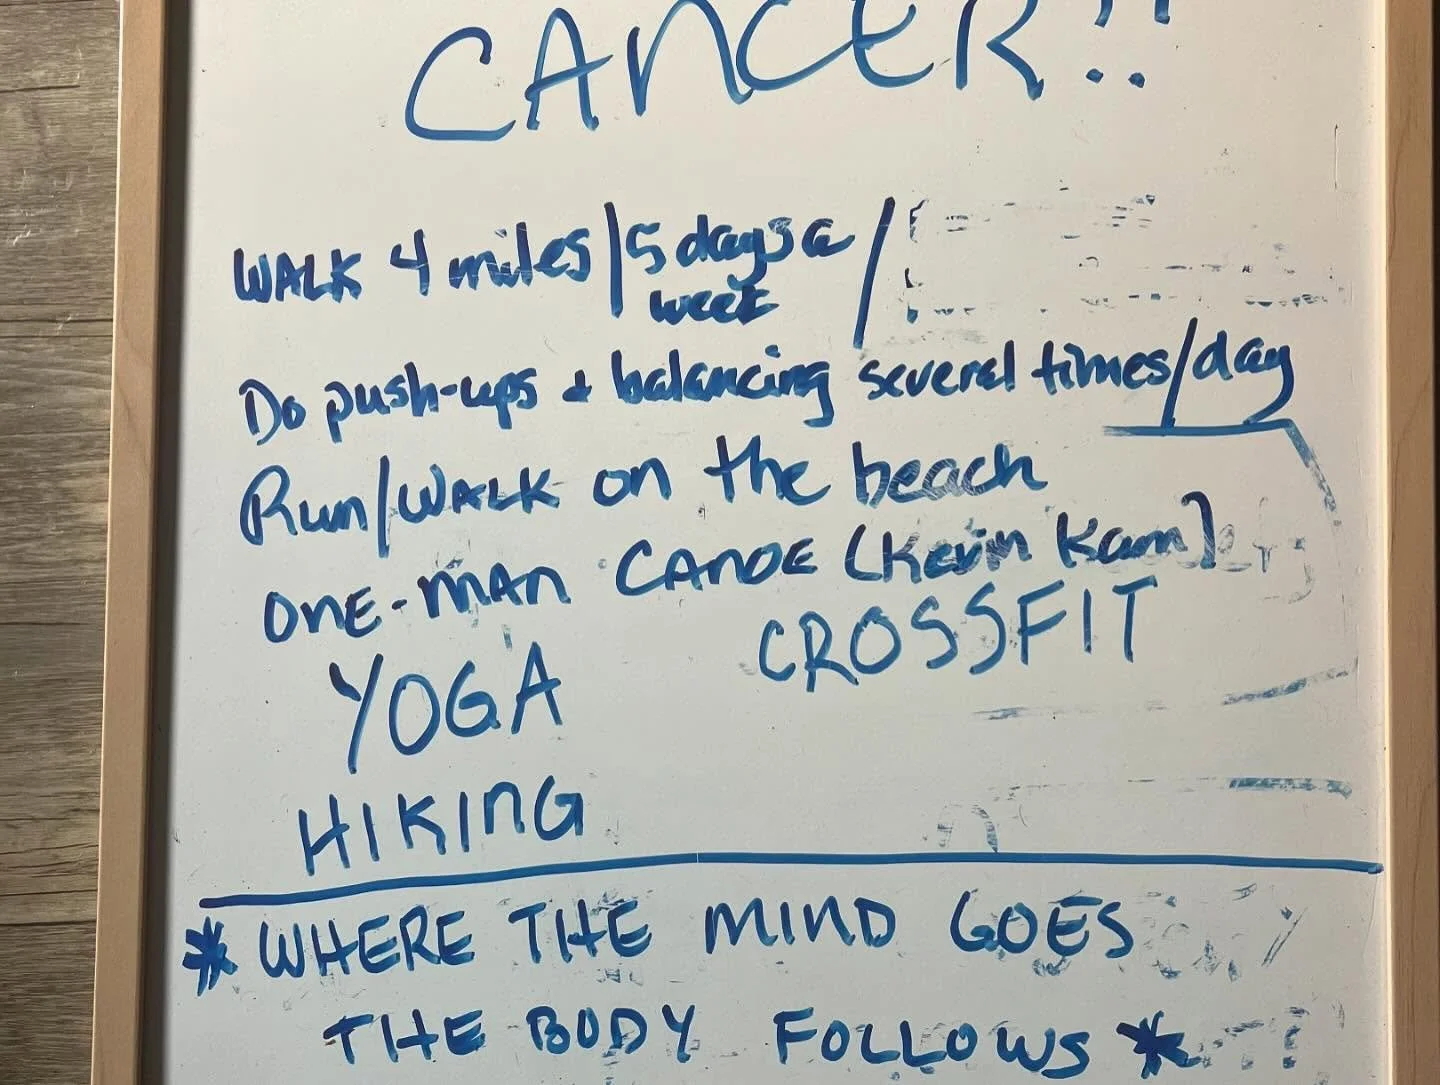 CANCER!!
WALK 4 miles/5 days a week/
Do push-ups + balancing several times/day
Run/WALK on the beach
ONE-MAN CANOE (Kevin Kam)
YOGA CROSSFIT
HIKING
* WHERE THE MIND GOES
THE BODY FOLLOWS *